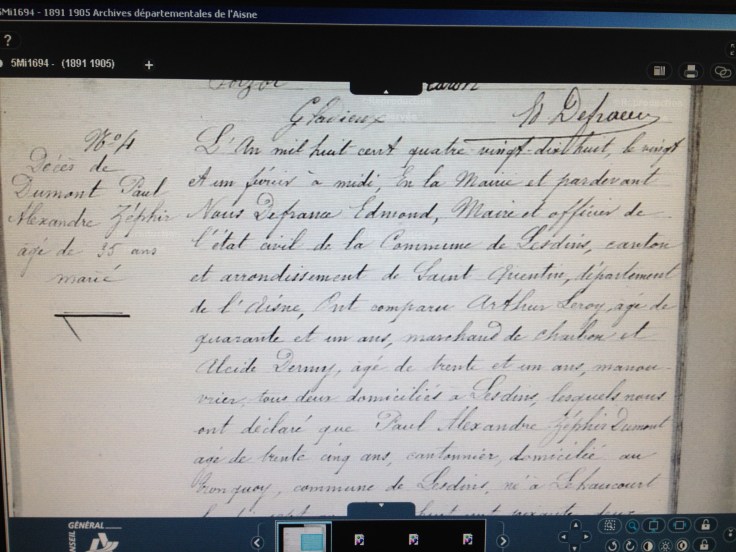 5Mi1694 - 1891 1905 Archives départementales de l'Aisne
?
5Mi1694 - (1891 1905)
+
Caron
Glavieux
E Defrance
N° 4
Décès de
Dumont Paul
Alexandre Zéphir
âgé de 35 ans
marié
L'An mil huit cent quatre-vingt-dix huit, le vingt
et un février à midi, En la Mairie et pardevant
Nous Defrance Edmond, Maire et officier de
l'état civil de la Commune de Lesdins, canton
et arrondissement de Saint-Quentin, département
de l'Aisne, Ont comparu Arthur Leroy, age de
quarante et un ans, marchand de charbon et
âgé de trente et un ans, manou-
vrier, tous deux domiciliés à Lesdins, lesquels nous
ont déclaré que Paul Alexandre Zéphir Dumont
agé de trente cinq ans, cantonnier, domicilié au
Tronquoy, commune de Lesdins, né à Lehaucourt
CONSEIL
GÉNÉRAL